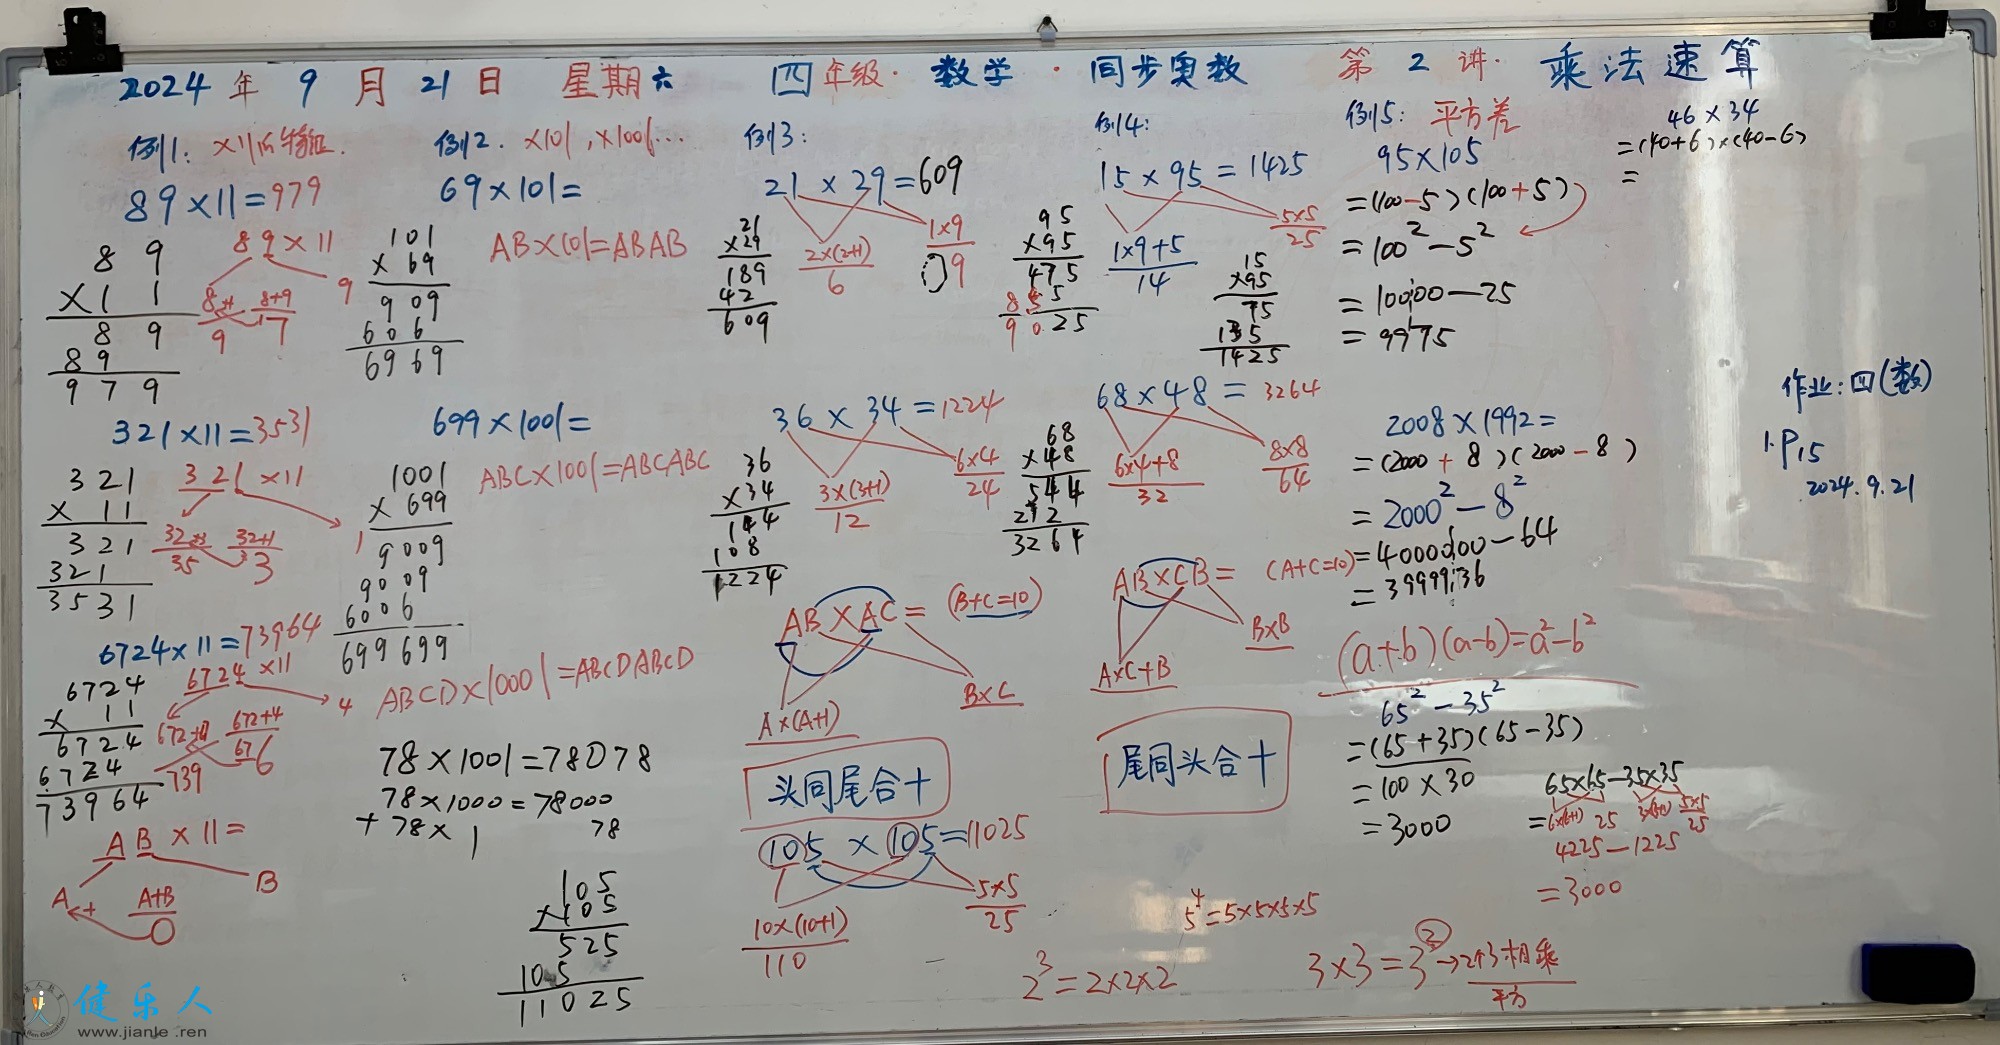 2024年9月21日 星期六 四年级·数学·同步奥数 第2讲·乘法速算
例1: ×11的特征.
89×11=979
89
×11
89
89
979
89×11
8+1
9
8+9
17
9
321×11=3531
321
×11
321
321
3531
321×11
32+3
35
32+1
33
1
6724×11=73964
6724
×11
6724
6724
73964
6724×11
672+67
739
672+4
676
4
AB×11=
A+
A+B
B
例2. ×101,×1001…
69×101=
101
×69
909
606
6969
AB×101=ABAB
699×1001=
1001
×699
9009
9009
6006
699699
ABC×1001=ABCABC
ABCD×10001=ABCDABCD
78×1001=78078
78×1000=78000
+78×1 78
105
×105
525
105
11025
例3:
21×29=609
21
×29
189
42
609
2×(2+1)
6
1×9
09
36×34=1224
36
×34
144
108
1224
3×(3+1)
12
6×4
24
AB×AC= (B+C=10)
A×(A+1)
B×C
头同尾合十
105×105=11025
10×(10+1)
110
5×5
25
例4:
15×95=1425
95
×95
475
855
9025
1×9+5
14
5×5
25
15
×95
75
135
1425
68×48=3264
68
×48
544
272
3264
6×4+8
32
8×8
64
AB×CB= (A+C=10)
A×C+B
B×B
尾同头合十
5⁴=5×5×5×5
2³=2×2×2
3×3=3²→2个3相乘
平方
例5: 平方差
95×105
=(100-5)(100+5)
=100²-5²
=10000-25
=9975
2008×1992=
=(2000+8)(2000-8)
=2000²-8²
=4000000-64
=3999936
(a+b)(a-b)=a²-b²
65²-35²
=(65+35)(65-35)
=100×30
=3000
65×65-35×35
=6×(6+1) 25 3×(3+1) 5×5
25
4225-1225
=3000
46×34
=(40+6)×(40-6)
=
作业:四(数)
1.P15
2024.9.21
健乐人
www.jianle.ren